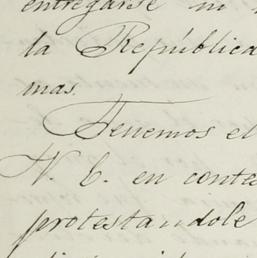 entregarse ni
la República
mas.
Tenemos el
V. E. en conte
protestandole